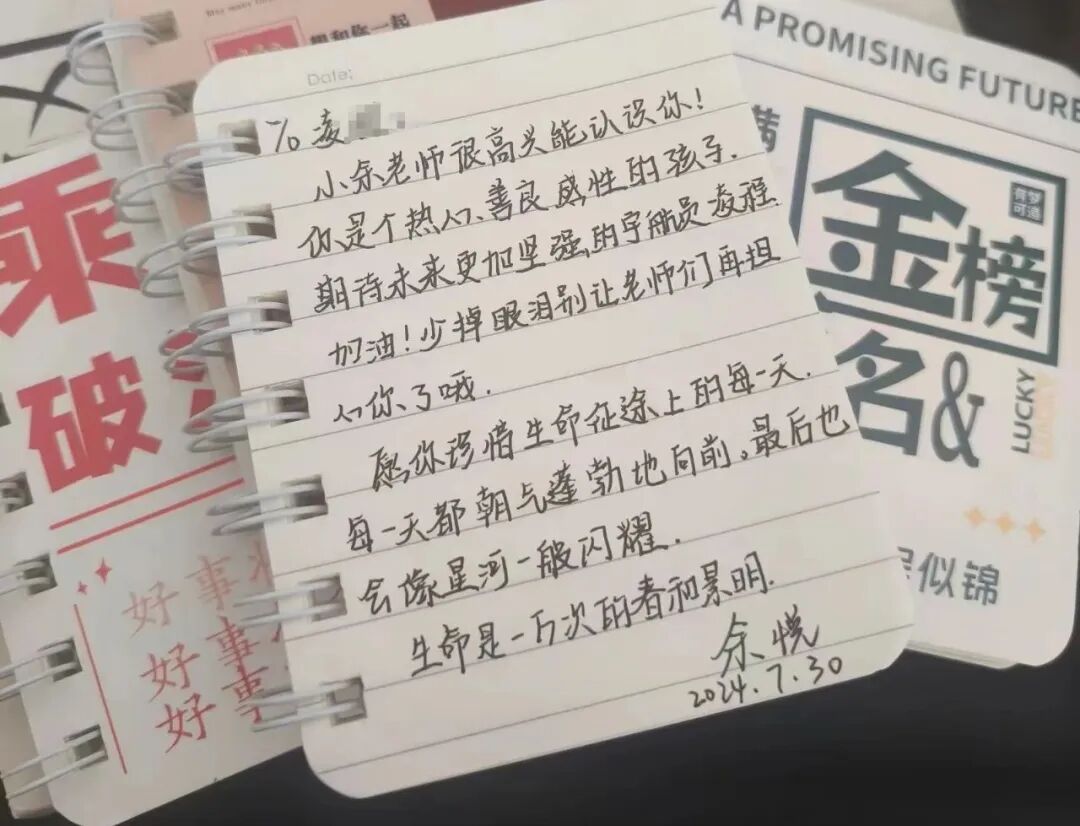 Date:
To 凌
小余老师很高兴能认识你!
你是个热心、善良感性的孩子.
期待未来更加坚强的宇航员凌程
加油!少掉眼泪别让老师们再担
心你了哦.
愿你珍惜生命征途上的每一天.
每一天都朝气蓬勃地向前。最后也
会像星河一般闪耀.
生命是一万次的春和景明.
余悦
2024.7.30
A PROMISING FUTURE
金榜
名&
LUCKY
LUCKY
有梦
可追
似锦
想和你一起
乘
破
好事
好事
好事